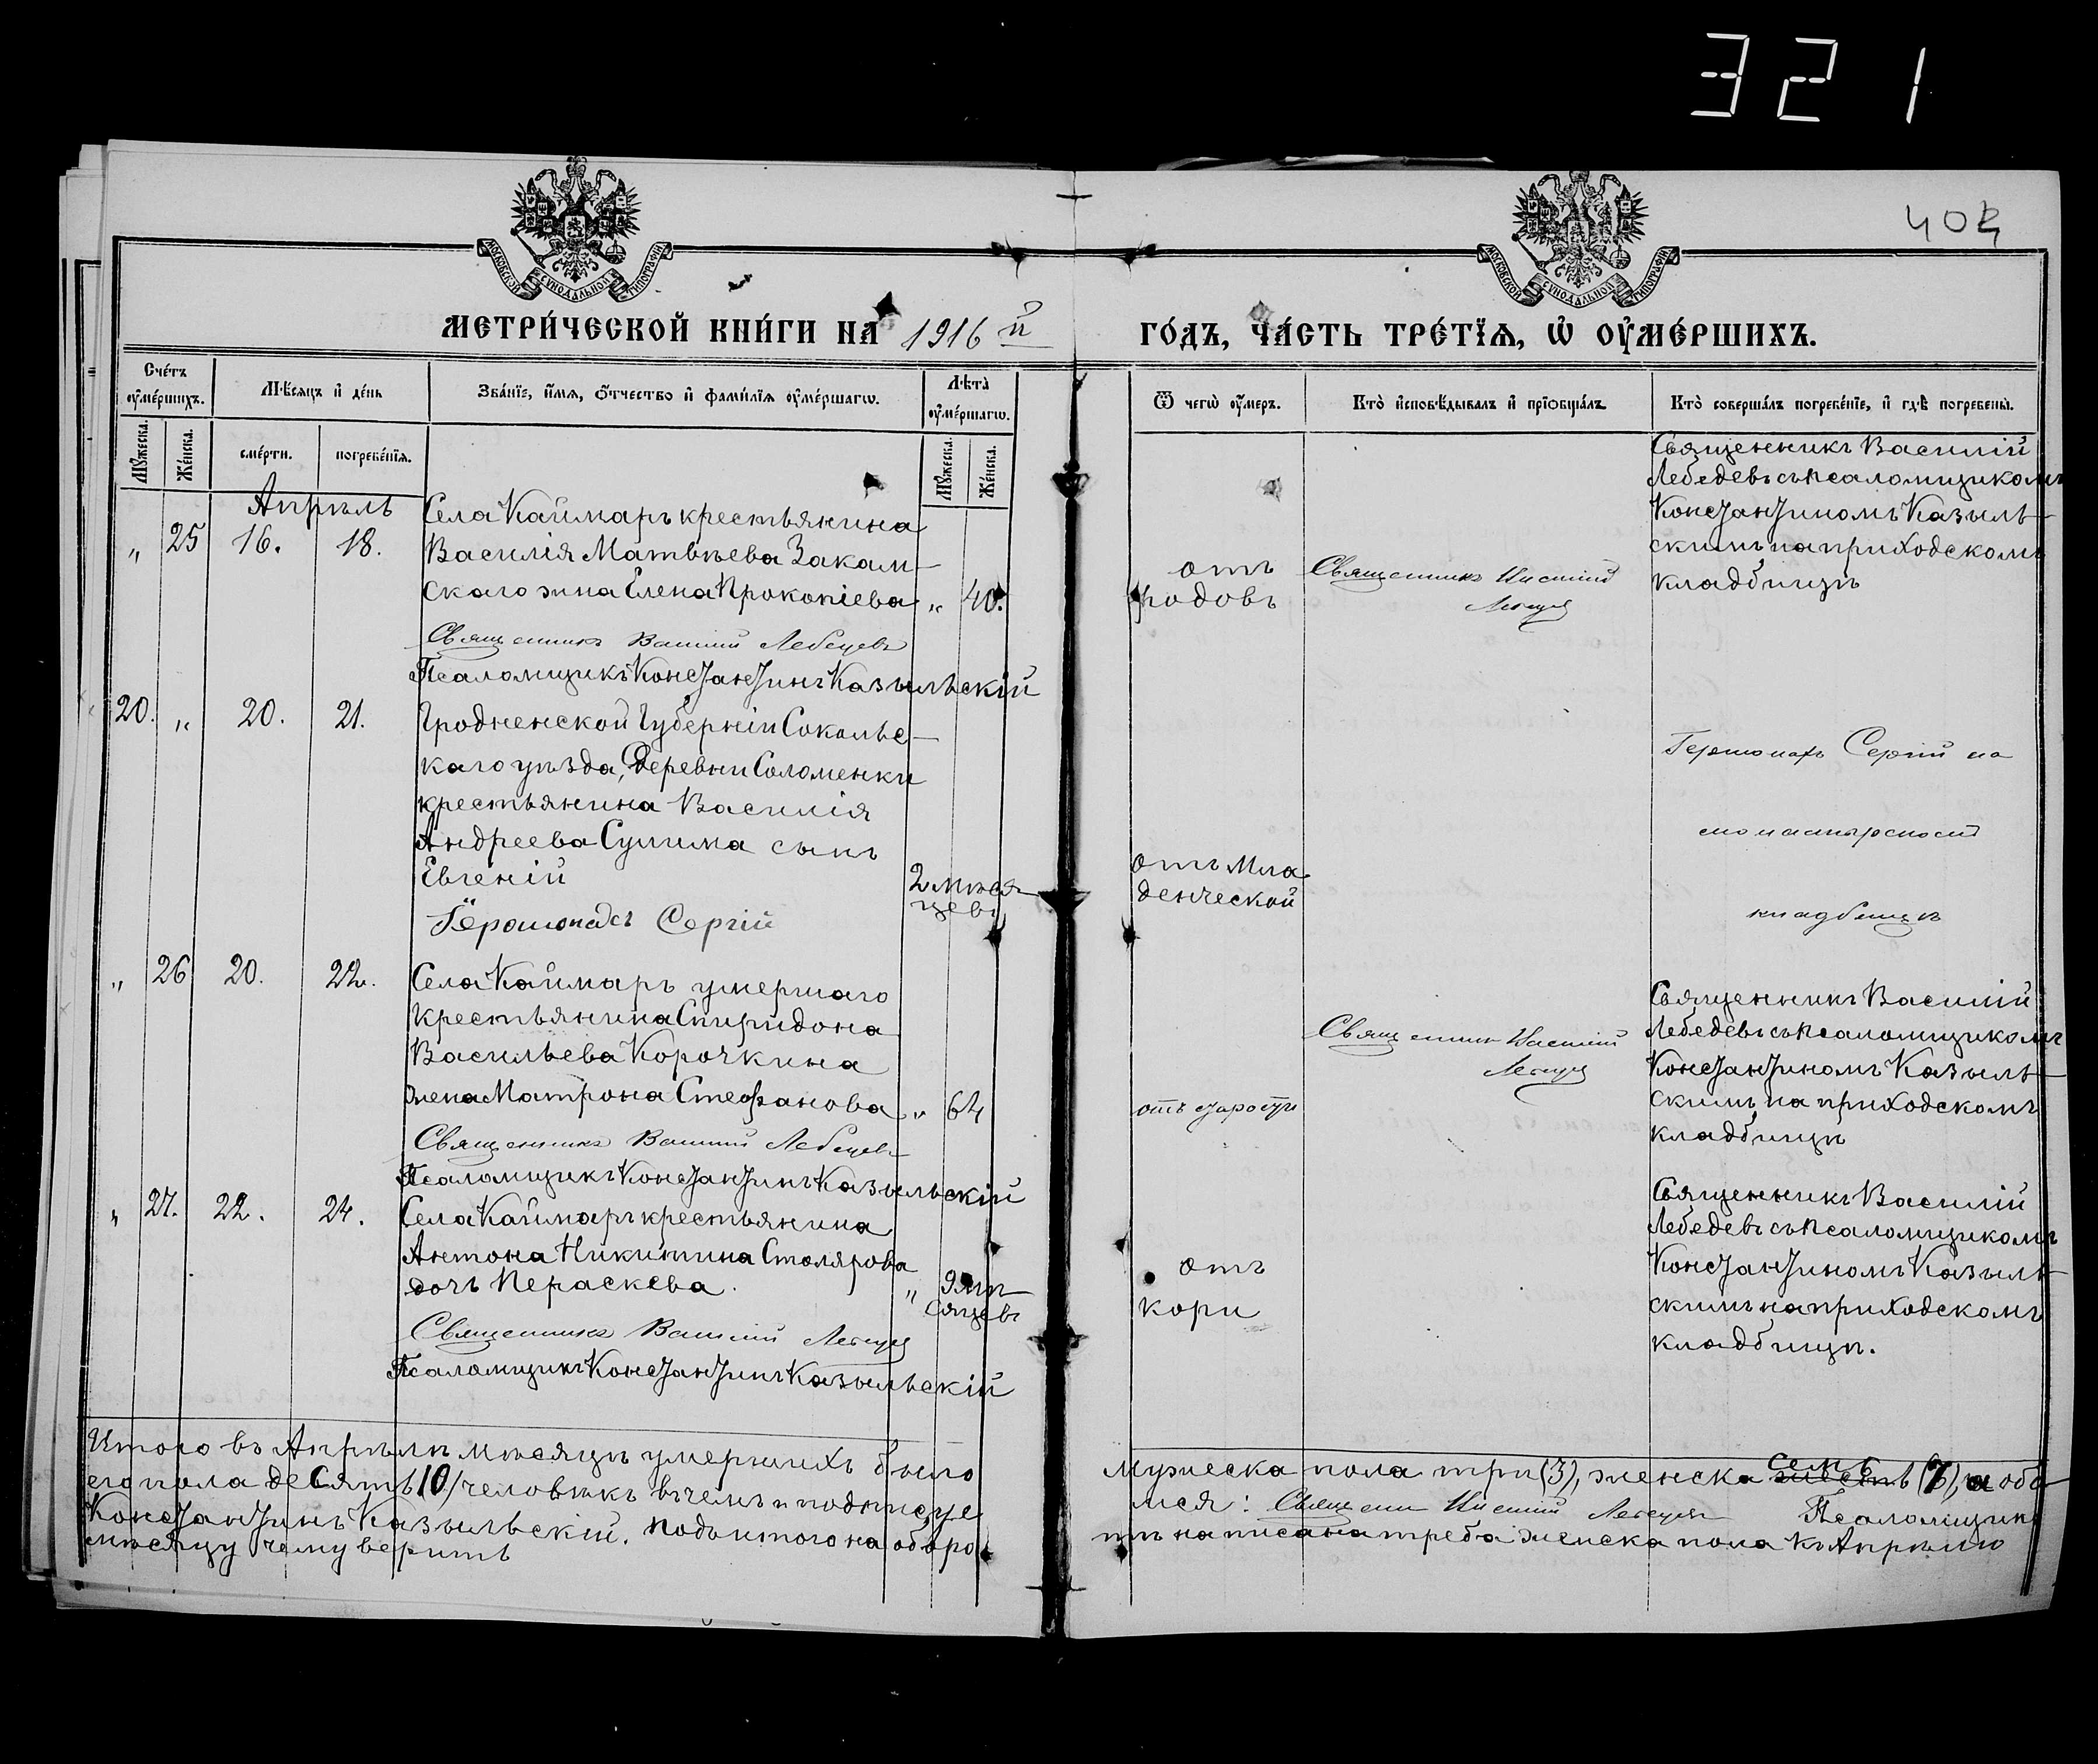 321
402
МОСКОВСКОЙ СѴНОДАЛЬНОЙ ТИПОГРАФІИ
МОСКОВСКОЙ СѴНОДАЛЬНОЙ ТИПОГРАФІИ
МЕТРИ́ЧЕСКОЙ КНИ́ГИ НА 1916 й
ГО́ДЪ, ЧА́СТЬ ТРЕ́ТЇѦ, Ѡ҆ ОУ҆МЕ́РШИХЪ.
Сче́тъ оу҆ме́ршихъ.
Мꙋ́жеска.
Же́нска.
Мѣ́сяцъ и҆ де́нь
сме́рти.
погребе́нїѧ.
Зва́нїе, и҆́мѧ, ѻ҆́тчество и҆ фами́лїѧ оу҆ме́ршагѡ.
Лѣ̀та оу҆ме́ршагѡ.
Мꙋ́жеска.
Же́нска.
Ѿ чегѡ̀ оу҆́меръ.
Кто̀ и҆сповѣ́дывалъ и҆ прїѻбща́лъ.
Кто̀ соверша́лъ погребе́нїе, и҆ гдѣ̀ погребены̀.
Апрѣль
„ 25 16. 18.
Села Каймаръ крестьянина
Василія Матвѣева Закам-
скаго жина Елена Прокопіева „ 40.
Священникъ Василій Лебедевъ
Псаломщикъ Константинъ Казыльскій
отъ
родовъ
Священникъ Василій
Лебедев
Священникъ Василій
Лебедевъ съ псаломщикомъ
Константиномъ Казыль-
скимъ на приходскомъ
кладбищѣ
20. „ 20. 21.
Гродненской Губерніи Сокольс-
каго уѣзда, Деревни Соломенки
крестьянина Василія
Андреева Сулима сынъ
Евгеній 2 мѣся-
цевъ
Іеромонахъ Сергій
отъ мла
денческой
Іеромонахъ Сергій на
монастырском
кладбищѣ
„ 26 20. 22.
Села Каймаръ умершаго
крестьянина Спиридона
Васильева Корочкина
жена Матрона Стефанова „ 64
Священникъ Василій Лебедевъ
Псаломщикъ Константинъ Казыльскій
отъ старости
Священник Василій
Лебедев
Священникъ Василій
Лебедевъ съ псаломщикомъ
Константиномъ Казыль-
скимъ на приходскомъ
кладбищѣ
„ 27. 22. 24.
Села Каймаръ крестьянина
Антона Никитина Столярова
дочь Пераскева. „ 9 мѣ-
сяцевъ
Священникъ Василій Лебедев
Псаломщикъ Константинъ Казыльскій
отъ
кори
Священникъ Василій
Лебедевъ съ псаломщикомъ
Константиномъ Казыль-
скимъ на приходскомъ
кладбищѣ.
Итого въ Апрѣлѣ мѣсяцѣ умершихъ было
его пола десять /10/ человѣкъ въ чемъ и подписуе
Константинъ Казыльскій. Подъ итого на оборо
мѣсяцу чему вѣрить
мужеска пола три (3), женска семь (7), а обо
мся: Священник Василій Лебедевъ Псаломщикъ
тѣ написана треба женска пола къ Апрѣлю